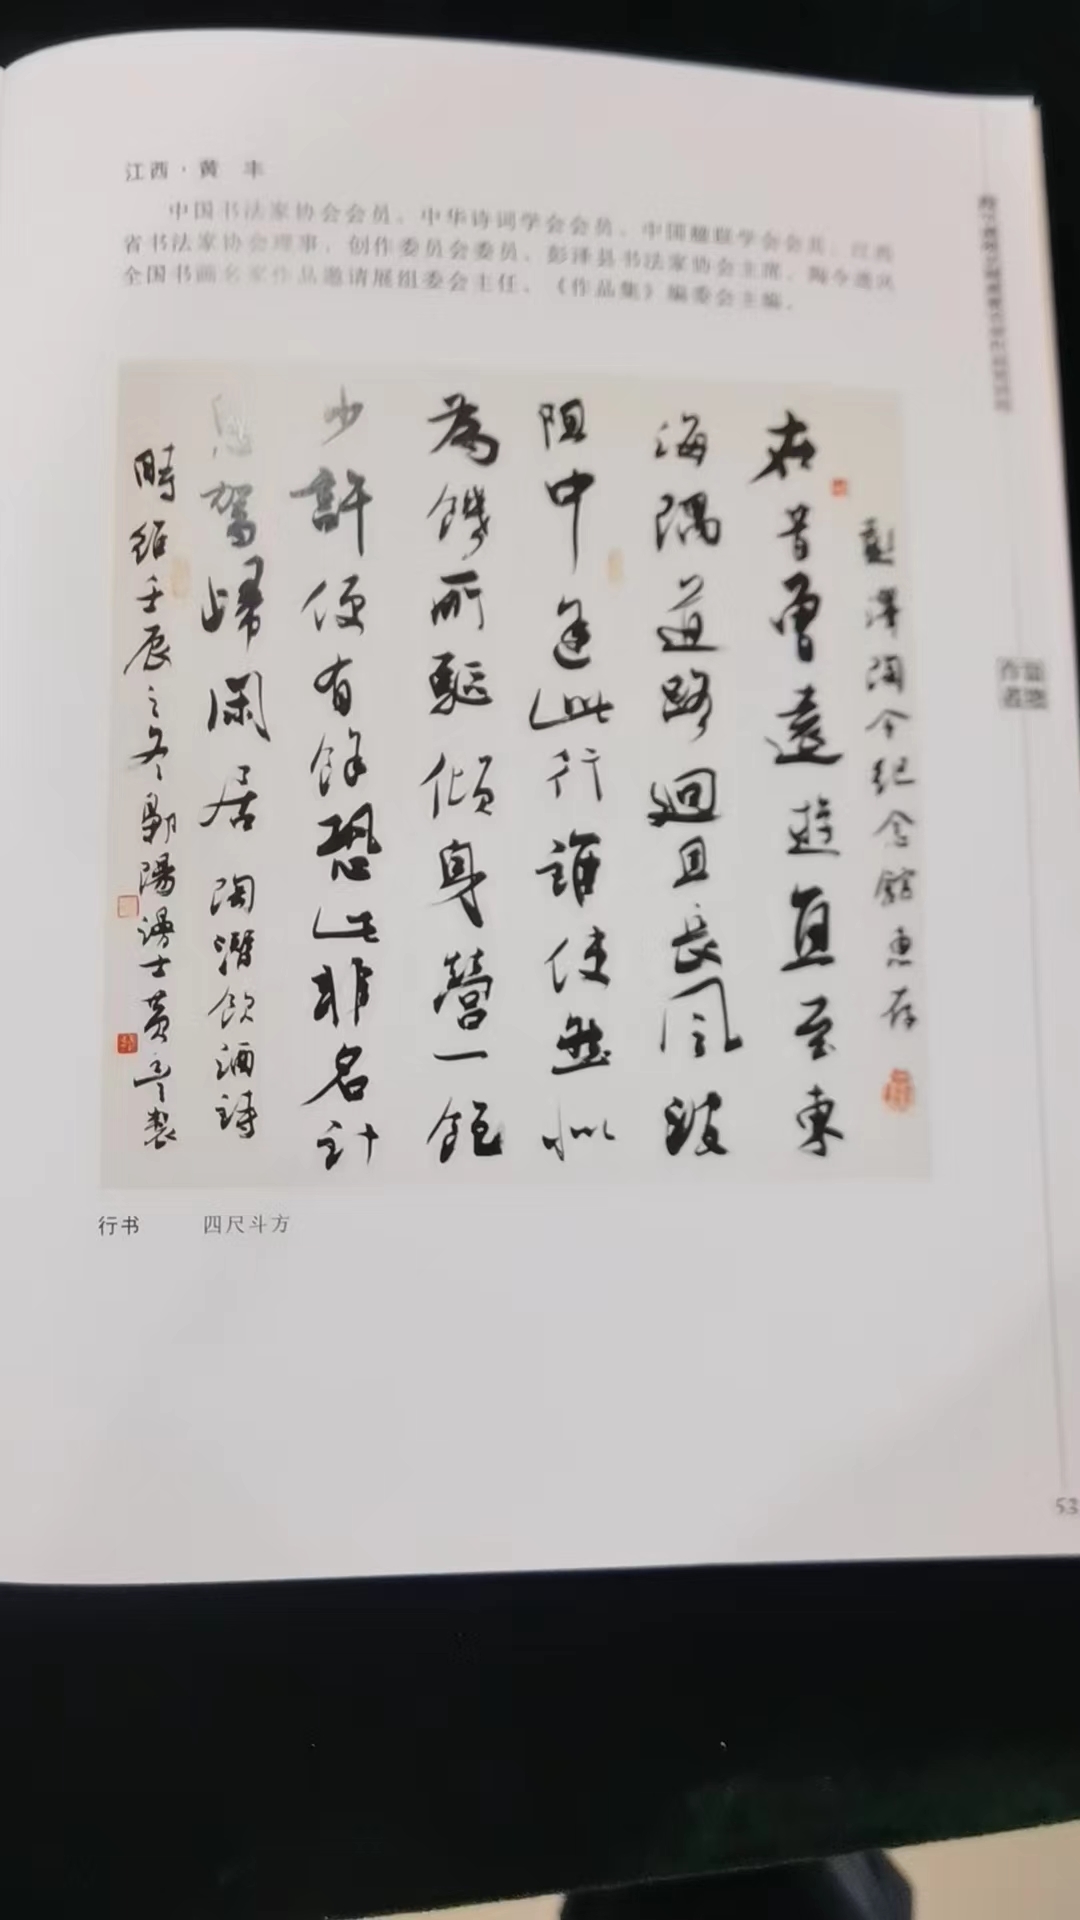 江西·黄 丰
中国书法家协会会员、中华诗词学会会员、中国楹联学会会员、江西
省书法家协会理事、创作委员会委员、彭泽县书法家协会主席、陶令遗风
全国书画名家作品邀请展组委会主任、《作品集》编委会主编。
彭澤陶令纪念館惠存
在昔曾遠遊直至東
海隅道路迴且長風波
阻中逢此行誰使然似
為饑所驅傾身營一飽
少許便有餘恐此非名計
息駕歸閑居 陶潛飲酒詩
時維壬辰之冬鄡陽漫士黄丰製
行书 四尺斗方
53